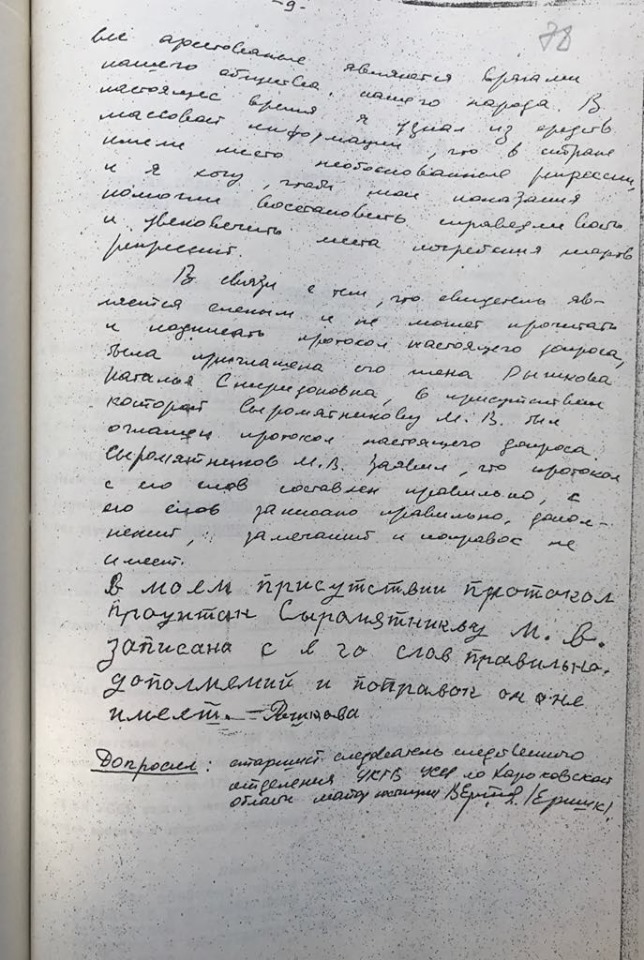 -9-
78
все арестованные являются врагами
нашего общества, нашего народа. В
настоящее время я узнал из средств
массовой информации, что в стране
имели место необоснованные репрессии,
и я хочу, чтобы мои показания
помогли восстановить справедливость
и увековечить места погребения жертв
репрессий.
В связи с тем, что свидетель яв-
ляется слепым и не может прочитать
и подписать протокол настоящего допроса,
была приглашена его жена Рышкова
Наталья Спиридоновна, в присутствии
которой Сыромятникову М. В. был
оглашен протокол настоящего допроса.
Сыромятников М.В. заявил, что протокол
с его слов составлен правильно, с
его слов записано правильно, допол-
нений, замечаний и поправок не
имеет.
В моем присутствии протокол
прочитан Сыромятникову М. В.
записана с его слов правильно.
дополнений и поправок он не
имеет. – Рышкова
Допросил: старший следователь следственного
отделения УКГБ УССР по Харьковской
области майор юстиции /Ершик/